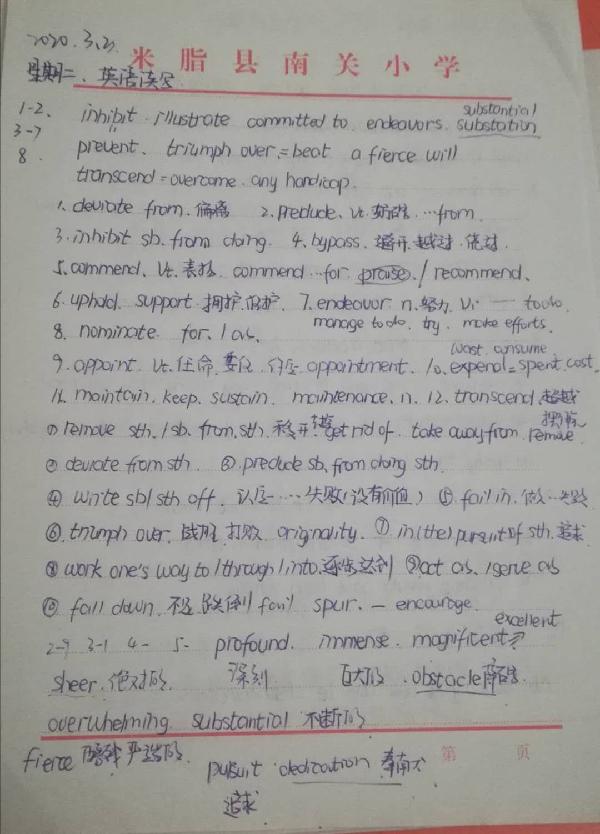 2020.3.
米脂县南关小学
星期二、英语读写
1-2、 inhibit. illustrate committed to. endeavors. substation substantial
3-7 prevent、 triumph over.=beat a fierce will
8. transcend=overcome. any handicap.
1. deviate from. 偏离 2. preclude. vt. 妨碍. …from.
3. inhibit sb. from doing. 4. bypass. 避开. 越过. 绕过.
5. commend. vt. 表扬. commend …for. praise. / recommend、
6. uphold. support. 拥护. 保护. 7. endeavor. n. 努力. vi. — to do.
manage to do. try. make efforts.
8. nominate for. / as.
wast. consume
9. appoint vt. 任命. 委任. appointment. 10. expend=spent. cost.
11. maintain. keep. sustain. maintenance. n. 12. transcend. 超越
① remove sth. / sb. from. sth. 移开 get rid of. take away from. remove
② deviate from sth ③. preclude sb. from doing sth.
④ write sb/sth off. 认定……失败(没有价值) ⑤. fail in. 做…失败
⑥. triumph over. 战胜. 打败. originality. ⑦ in (the) pursuit of sth. 追求
⑧ work one's way to / through / into. 逐步达到 ⑨ act as. / serve as
⑩ fall down. 跌倒 fail spur. — encourage.
excellent
2-9 3-1 4- 5- profound. immense. magnificent
sheer. 绝对的. 深刻 巨大的. obstacle 障碍.
overwhelming. substantial 不断的
第 页
fierce 严酷的. pursuit. dedication 奉献
追求